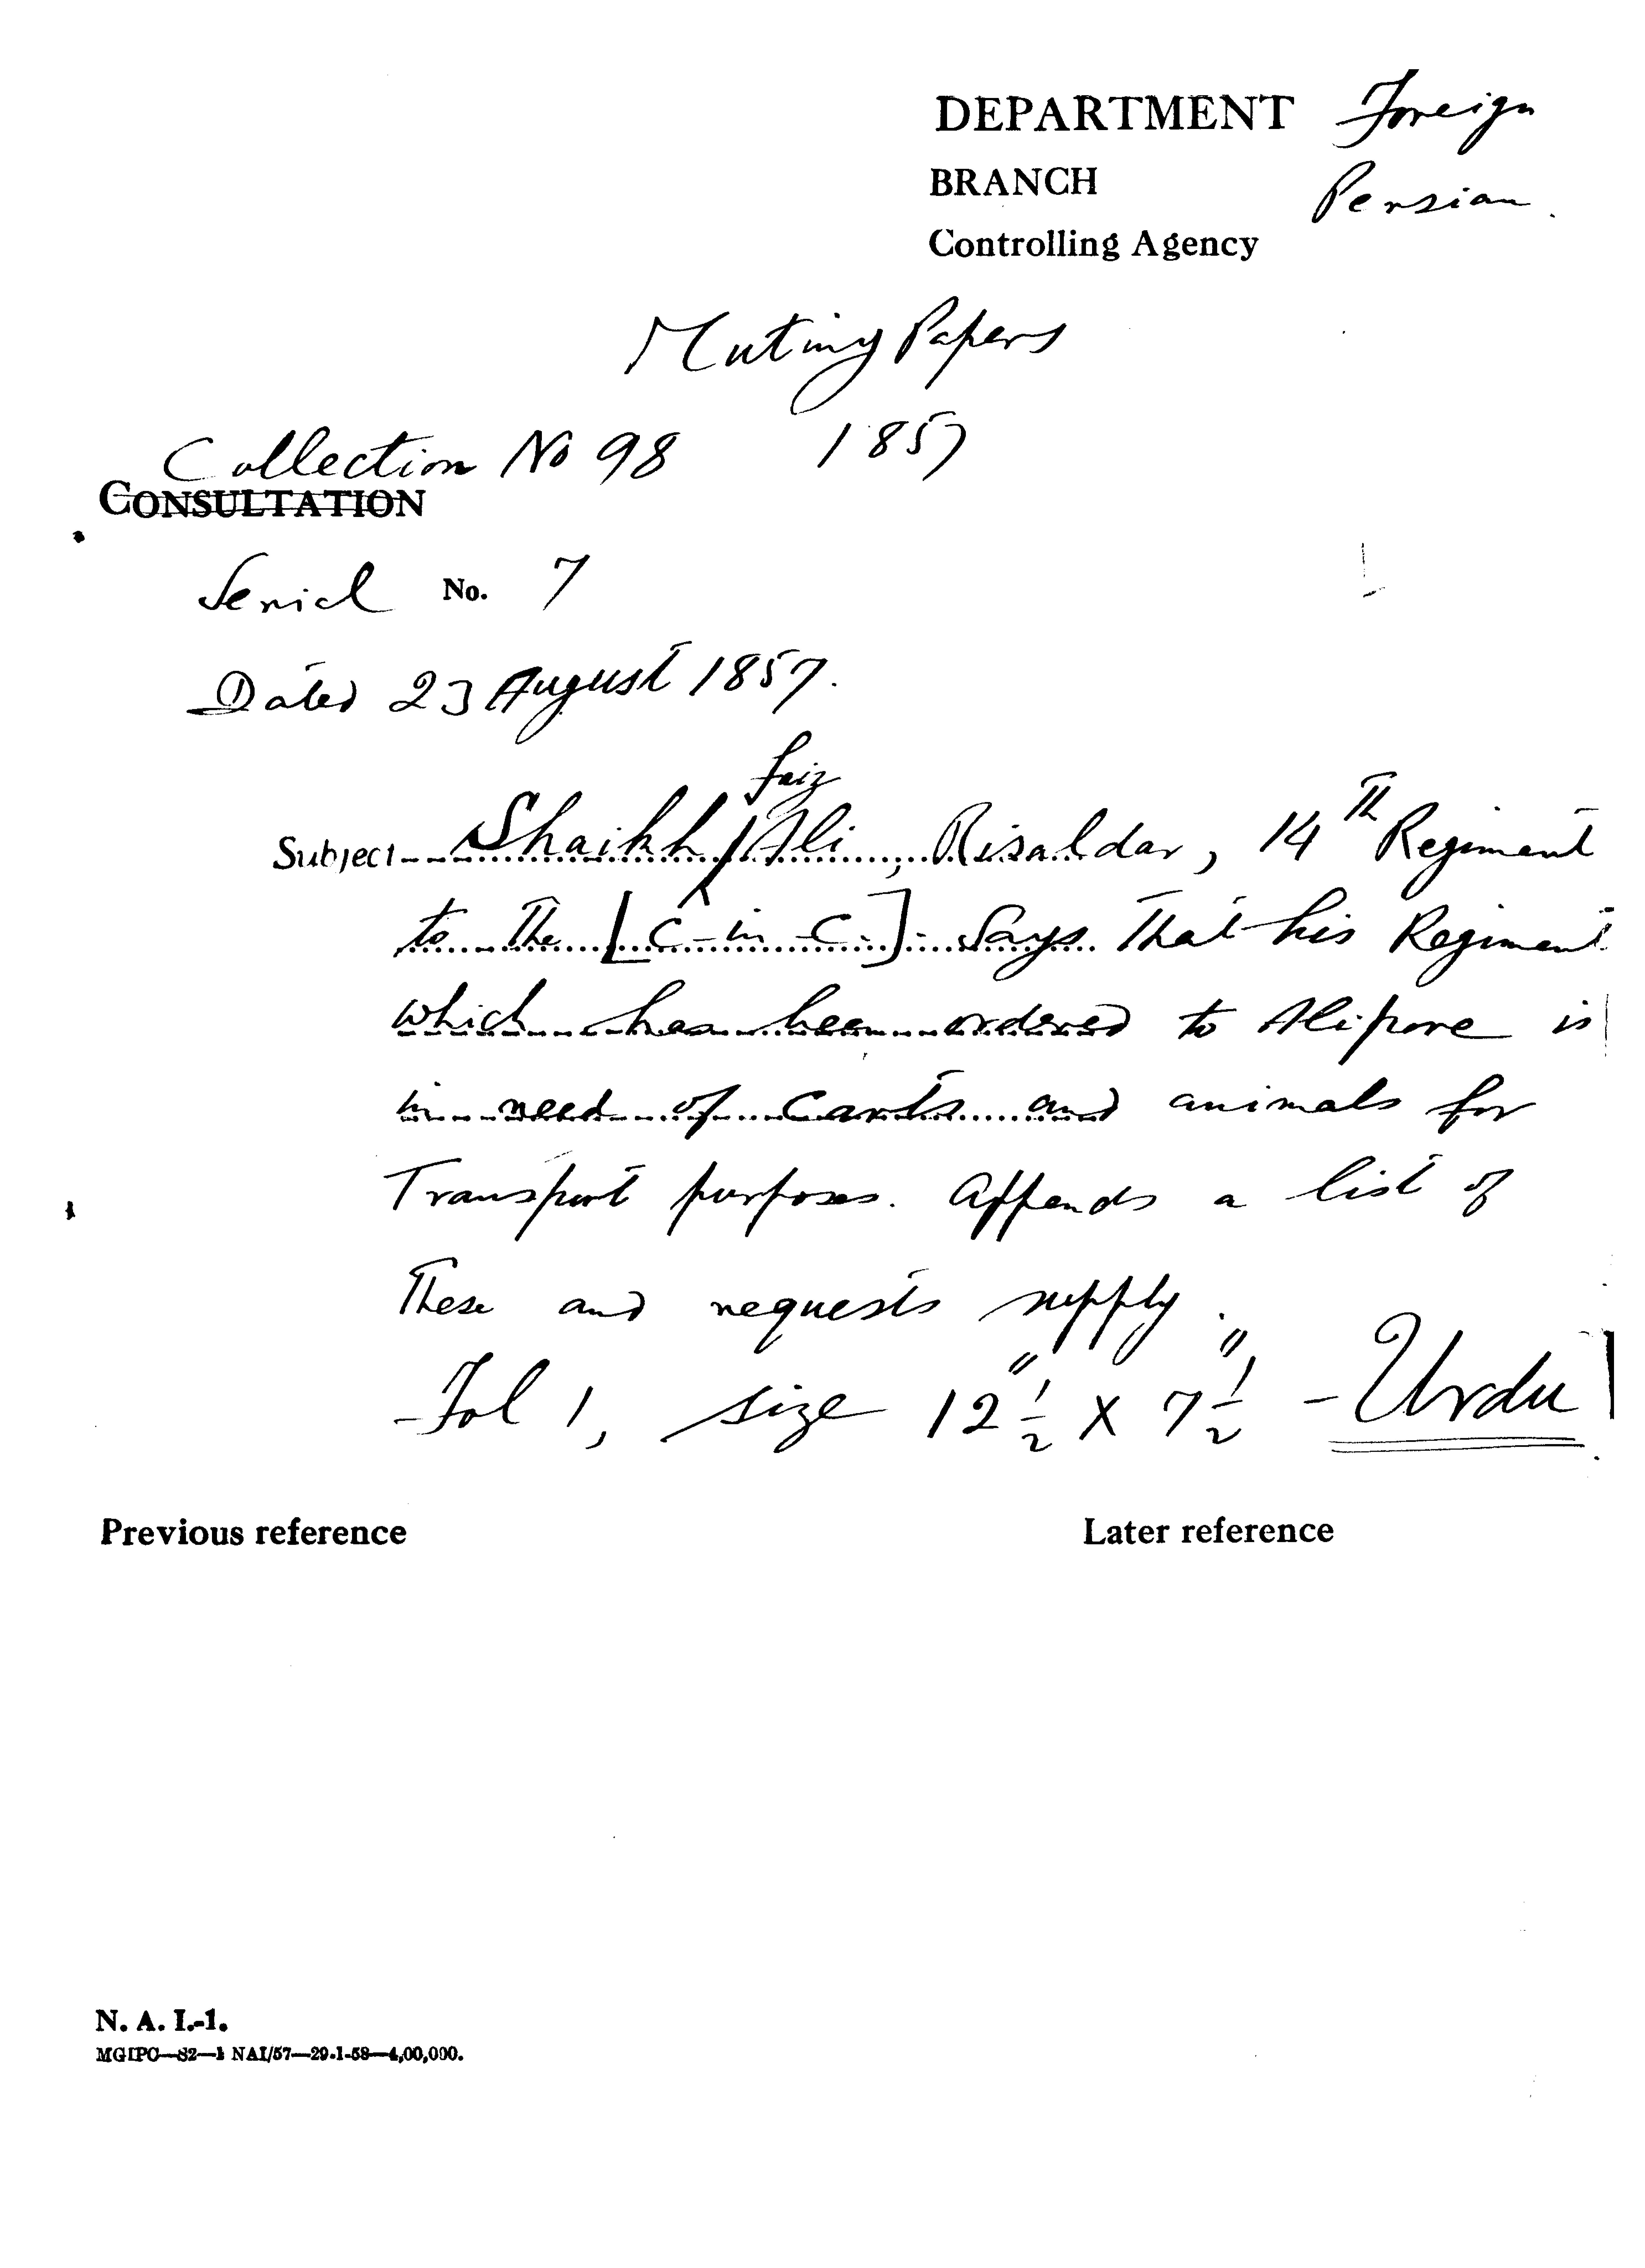 DEPARTMENT Foreign
BRANCH Persian
Controlling Agency
Mutiny Papers
Collection No 98 1857
CONSULTATION
Serial No. 7
Dated 23 August 1857.
faiz
Subject Shaikh / Ali, Risaldar, 14th Regiment
to the [C-in-C.]. Says that his Regiment
which has been ordered to Alipore is
in need of carts and animals for
Transport purposes. Appends a list of
these and requests supply.
-Fol 1, size 12½" x 7½" - Urdu
Previous reference Later reference
N. A. I.-1.
MGIPC—S2—1 NAI/57—29-1-58—4,00,000.